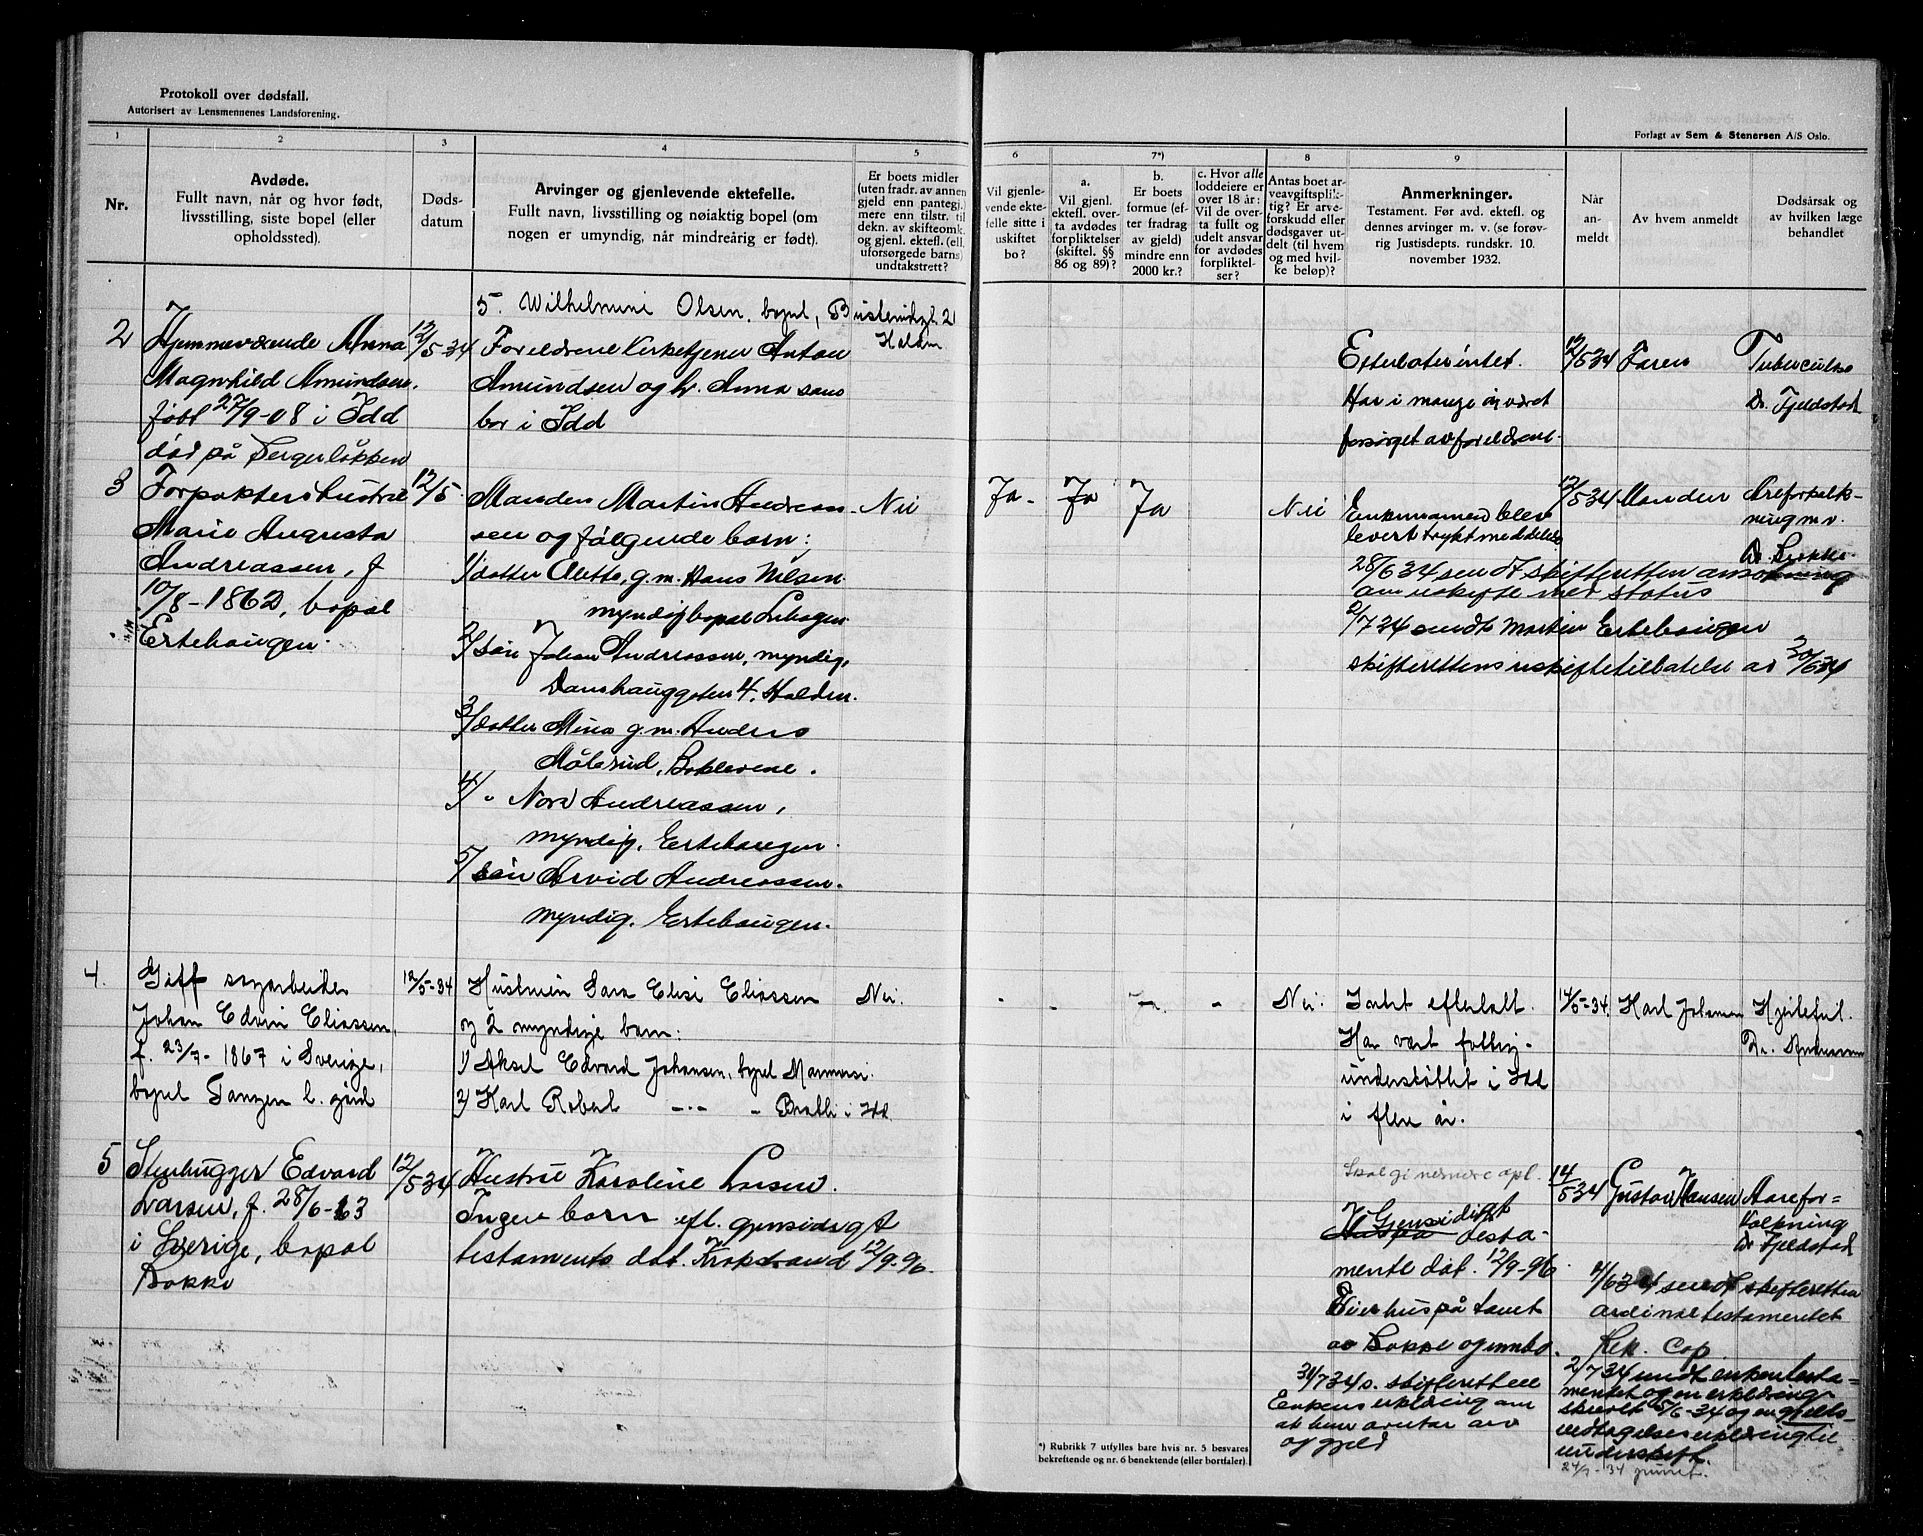 Protokoll over dødsfall.
Autorisert av Lensmennenes Landsforening.
Forlagt av Sem & Stenersen A/S Oslo.
1
2
3
4
5
6
7*)
8
9
Nr.
Avdøde.
Fullt navn, når og hvor født,
livsstilling, siste bopel (eller
opholdssted).
Døds-
datum
Arvinger og gjenlevende ektefelle.
Fullt navn, livsstilling og nøiaktig bopel (om
nogen er umyndig, når mindreårig er født).
Er boets midler
(uten fradr. av annen
gjeld enn pantegj.)
mere enn tilstr. til
dekn. av skifteomk.
og gjenl. ektefl. (ell.
uforsørgede barns)
undtakstrett?
Vil gjenle-
vende ekte-
felle sitte i
uskiftet
bo?
a.
Vil gjenl.
ektefl. over-
ta avdødes
forpliktelser
(skiftel. §§
86 og 89)?
b.
Er boets
formue (ef-
ter fradrag
av gjeld)
mindre enn
2000 kr.?
c. Hvor alle
loddeiere er
over 18 år:
Vil de over-
ta fullt og
udelt ansvar
for avdødes
forpliktel-
ser?
Antas boet ar-
veavgiftsplik-
tig? Er arve-
forskudd eller
dødsgaver ut-
delt (til hvem
og med hvil-
ke beløp)?
Anmerkninger.
Testament. Før avd. ektefl. og
dennes arvinger m. v. (se forøv-
rig Justisdepts. rundskr. 10.
november 1932.
Når
an-
meldt
Av hvem anmeldt
Dødsårsak og
av hvilken læge
behandlet
5. Wilhelmine Olsen, bopel,
Halden
2
Hjemmeværende Anna
Magnhild Amundsen,
født 27/9-08 i Idd
død på
12/5 34
Foreldrene Kirketjener Anton
Amundsen og h. Anna sans
bor i Idd
Efterlater intet.
Har i mange år været
forsørget av foreldrene.
12/5 34
Faren
Tuberculose
Dr. Fjeldstad
3
Forpakterhustru
Marie Augusta
Andreassen, f
10/8-1862, bopel
Ertehaugen.
12/5
Manden Martin Andreas-
sen og følgende barn:
1/ datter Aletta, g.m. Hans Nilsen
myndig bopel
2/ Søn Johan Andreassen, myndig,
Danshauggaten 4, Halden.
3/ datter Mina g.m. Anders
Målerud,
4/ " Nora Andreassen,
myndig, Ertehaugen.
5/ søn Arvid Andreassen.
myndig. Ertehaugen.
Nei
Ja.
Ja
Ja
Nei
Enkemannen blev
levert trykt meddelelse
28/6 34 sendt skifteretten ansøkning
om uskifte med status
2/7 34 sendt Martin Ertehaugen
skifterettens uskiftetillatelse av 30/6 34
12/5 34
Manden
Åreforkalk-
ning m.v.
4.
Gift
Johan Edvin Eliassen,
f. 23/7-1867 i Sverige,
bopel Tangen
12/5-34
Hustruen Sara Elise Eliassen
og 2 myndige barn:
1) Aksel Edvard Johansen, bopel
2) Karl Robert -"- " i Idd.
Nei.
-
-
-
Nei.
Intet efterlatt.
Har vært fattig-
understøttet i Idd
i flere år.
14/5-34.
Karl Johansen
Hjertefeil.
5
Stenhugger Edvard
Larsen, f. 28/6-63
i Sverige, bopel
Bakke
12/5 34
Hustru Karoline Larsen.
Ingen barn efl. gjensidigt
testamente dat. 12/9-96.
Skal gi nærmere opl.
Gjensidigt
testa-
mente dat. 12/9-96.
Eier hus på
av Bakke og innbo.
31/7 34 s. skifteretten
Enkens erklæring om
at hun overtar arv
og gjeld
14/5 34
Gustav Hansen
Aarefor=
kalkning
Dr. Fjeldstad
4/6 34 sendt skifteretten
originaltestamentet
Rek. Cop.
2/7 34 sendt enken testa=
mentet og en erklæring
skrevet 5/6-34 og en gjelds-
vedtagelseserklæring til
underskrift.
24/7-34
*) Rubrikk 7 utfylles bare hvis nr. 5 besvares
bekreftende og nr. 6 benektende (eller bortfaler).